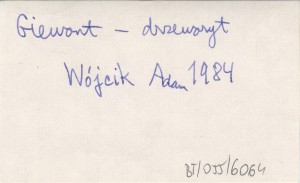 Giewont – drzeworyt
Wójcik Adam 1984
BT/OJJ/6064